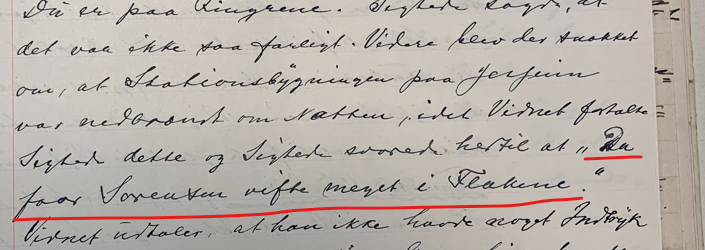 Du er paa Ringrene. Sigtede sagde, at
det var ikke saa farligt. Videre blev der snakket
om, at Stationsbygningen paa Jerssinn
var nedbrændt om Natten, idet Vidnet fortalte
Sigtede dette og Sigtede svarede hertil at „Da
faar Sørensen vifte meget i Flakene."
Vidnet udtaler, at han ikke havde noget Indtryk